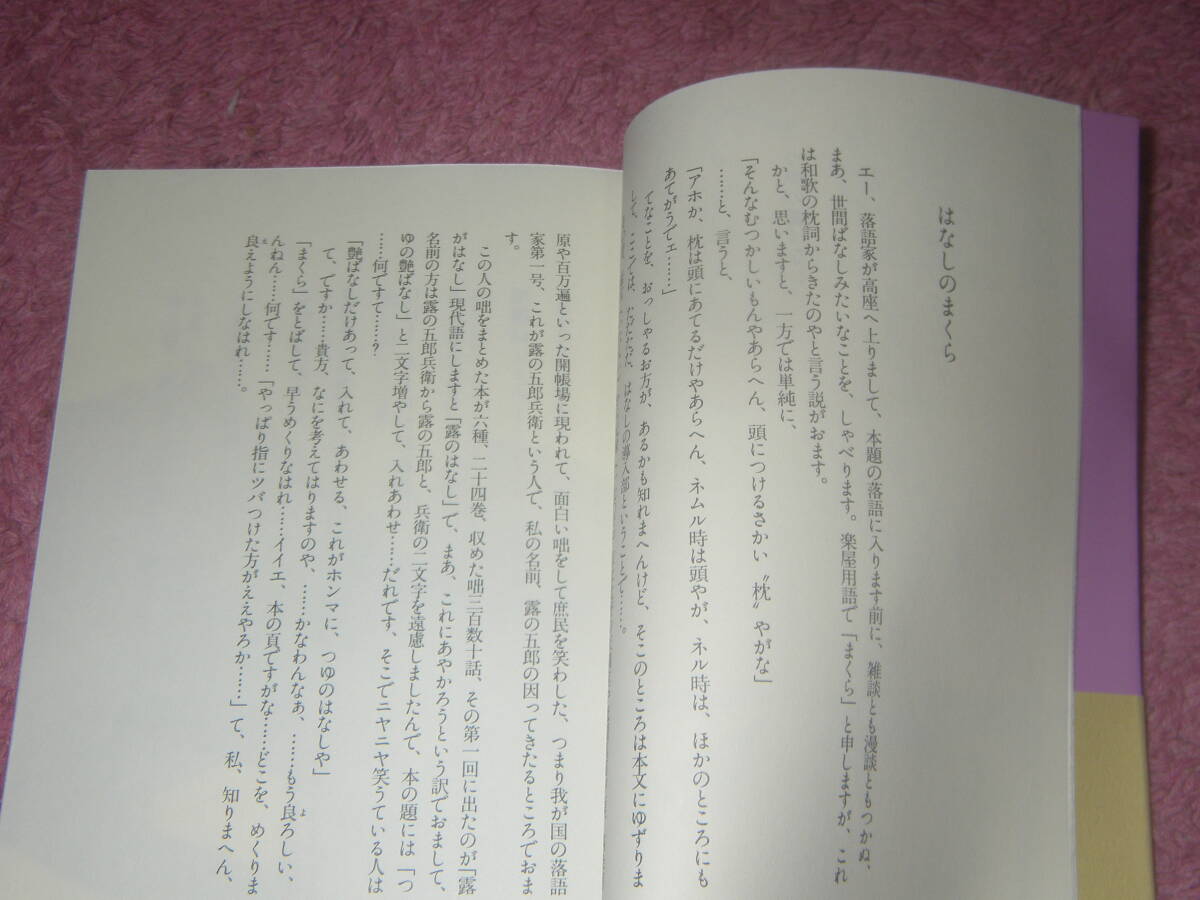 はなしのまくら
エー、落語家が高座へ上りまして、本題の落語に入ります前に、雑談とも漫談ともつかぬ、
まあ、世間ばなしみたいなことを、しゃべります。楽屋用語で「まくら」と申しますが、これ
は和歌の枕詞からきたのやと言う説がおます。
かと、思いますと、一方では単純に、
「そんなむつかしいもんやあらへん、頭につけるさかい〝枕〟やがな」
……と、言うと、
「アホか、枕は頭にあてるだけやあらへん、ネムル時は頭やが、ネル時は、ほかのところにも
あてがうでェ……」
てなことを、おっしゃるお方が、あるかも知れまへんけど、そこのところは本文にゆずりま
して、ここでは、はなしの導入部ということで……。
原や百万遍といった開帳場に現われて、面白い咄をして庶民を笑わした、つまり我が国の落語
家第一号、これが露の五郎兵衛という人で、私の名前、露の五郎の因ってきたるところでおま
す。
この人の咄をまとめた本が六種、二十四巻、収めた咄三百数十話、その第一回に出たのが「露
がはなし」現代語にしますと「露のはなし」で、まあ、これにあやかろうという訳でおまして、
名前の方は露の五郎兵衛から露の五郎と、兵衛の二文字を遠慮しましたんで、本の題には「つ
ゆの艶ばなし」と二文字増やして、入れあわせ……だれです、そこでニヤニヤ笑うている人は
……何ですて……?
「艶ばなしだけあって、入れて、あわせる、これがホンマに、つゆのはなしや」
て、ですか……貴方、なにを考えてはりますのや、……かなわんなぁ、……もう良ろしい、
「まくら」をとばして、早うめくりなはれ……イイエ、本の頁ですがな……どこを、めくりま
んねん……何です……「やっぱり指にツバつけた方がええやろか……」て、私、知りまへん、
良えようにしなはれ……。